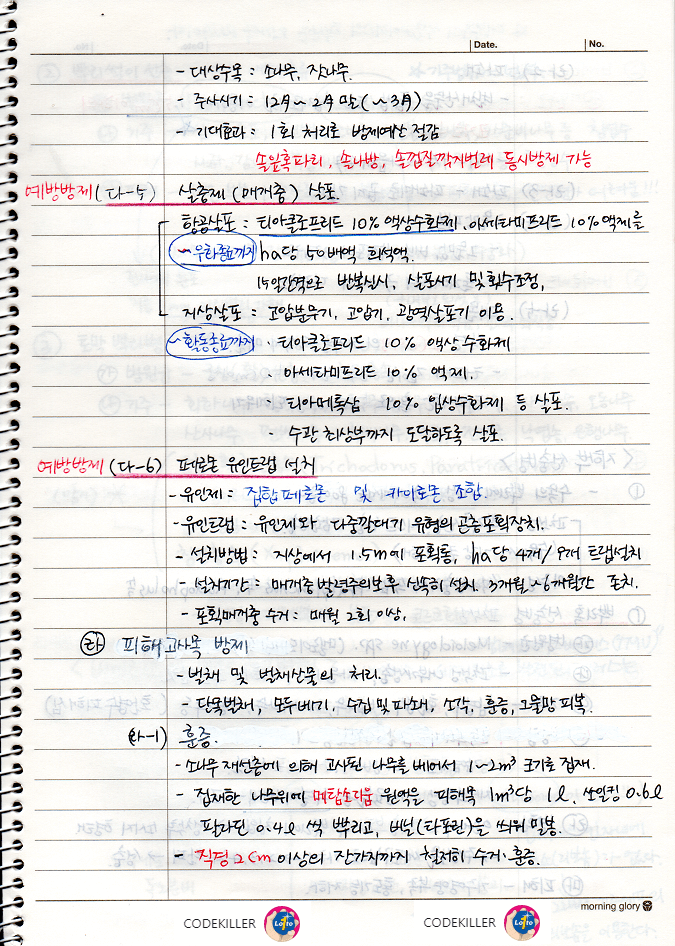 Date. No.
- 대상수목 : 소나무, 잣나무.
- 주사시기 : 12月 ~ 2月 말(~3月)
- 기대효과 : 1회 처리로 방제예산 절감
솔잎혹파리, 솔나방, 솔껍질깍지벌레 동시방제 가능
예방방제 (다-5) 살충제 (매개충) 살포.
항공살포 : 티아클로프리드 10% 액상수화제, 아세타미프리드 10% 액제를
~우화종료까지 ha당 50배액 희석액.
15일간격으로 반복실시, 살포시기 및 회수조정,
지상살포 : 고압분무기, 고압기, 광역살포기 이용.
~활동종료까지 · 티아클로프리드 10% 액상수화제
· 아세타미프리드 10% 액제.
· 티아메톡삼 10% 입상수화제 등 살포.
- 수관 최상부까지 도달하도록 살포.
예방방제 (다-6) 페로몬 유인트랩 설치
- 유인제 : 집합페로몬 및 카이로몬 조합.
- 유인트랩 : 유인제와 다중깔대기 유형의 곤충포획장치.
- 설치방법 : 지상에서 1.5m에 포획통, ha당 4개/9개 트랩설치
- 설치기간 : 매개충 발령주의보후 신속히 설치. 3개월~6개월간 포치.
- 포획매개충 수거 : 매월 2회 이상.
라 피해고사목 방제
- 벌채 및 벌채산물의 처리.
- 단목벌채, 모두베기, 수집 및 파쇄, 소각, 훈증, 그물망 피복.
(라-1) 훈증.
- 소나무 재선충에 의해 고사된 나무를 베어서 1~2m³ 크기로 집재.
- 집재한 나무위에 메탐소디움 원액을 피해목 1m³당 1ℓ, 쏘일킹 0.6ℓ
판라딘 0.4ℓ 씩 뿌리고, 비닐(타포린)을 씌워 밀봉.
- 직경 2cm 이상의 잔가지까지 철저히 수거·훈증.
morning glory
CODEKILLER Lotto CODEKILLER Lotto